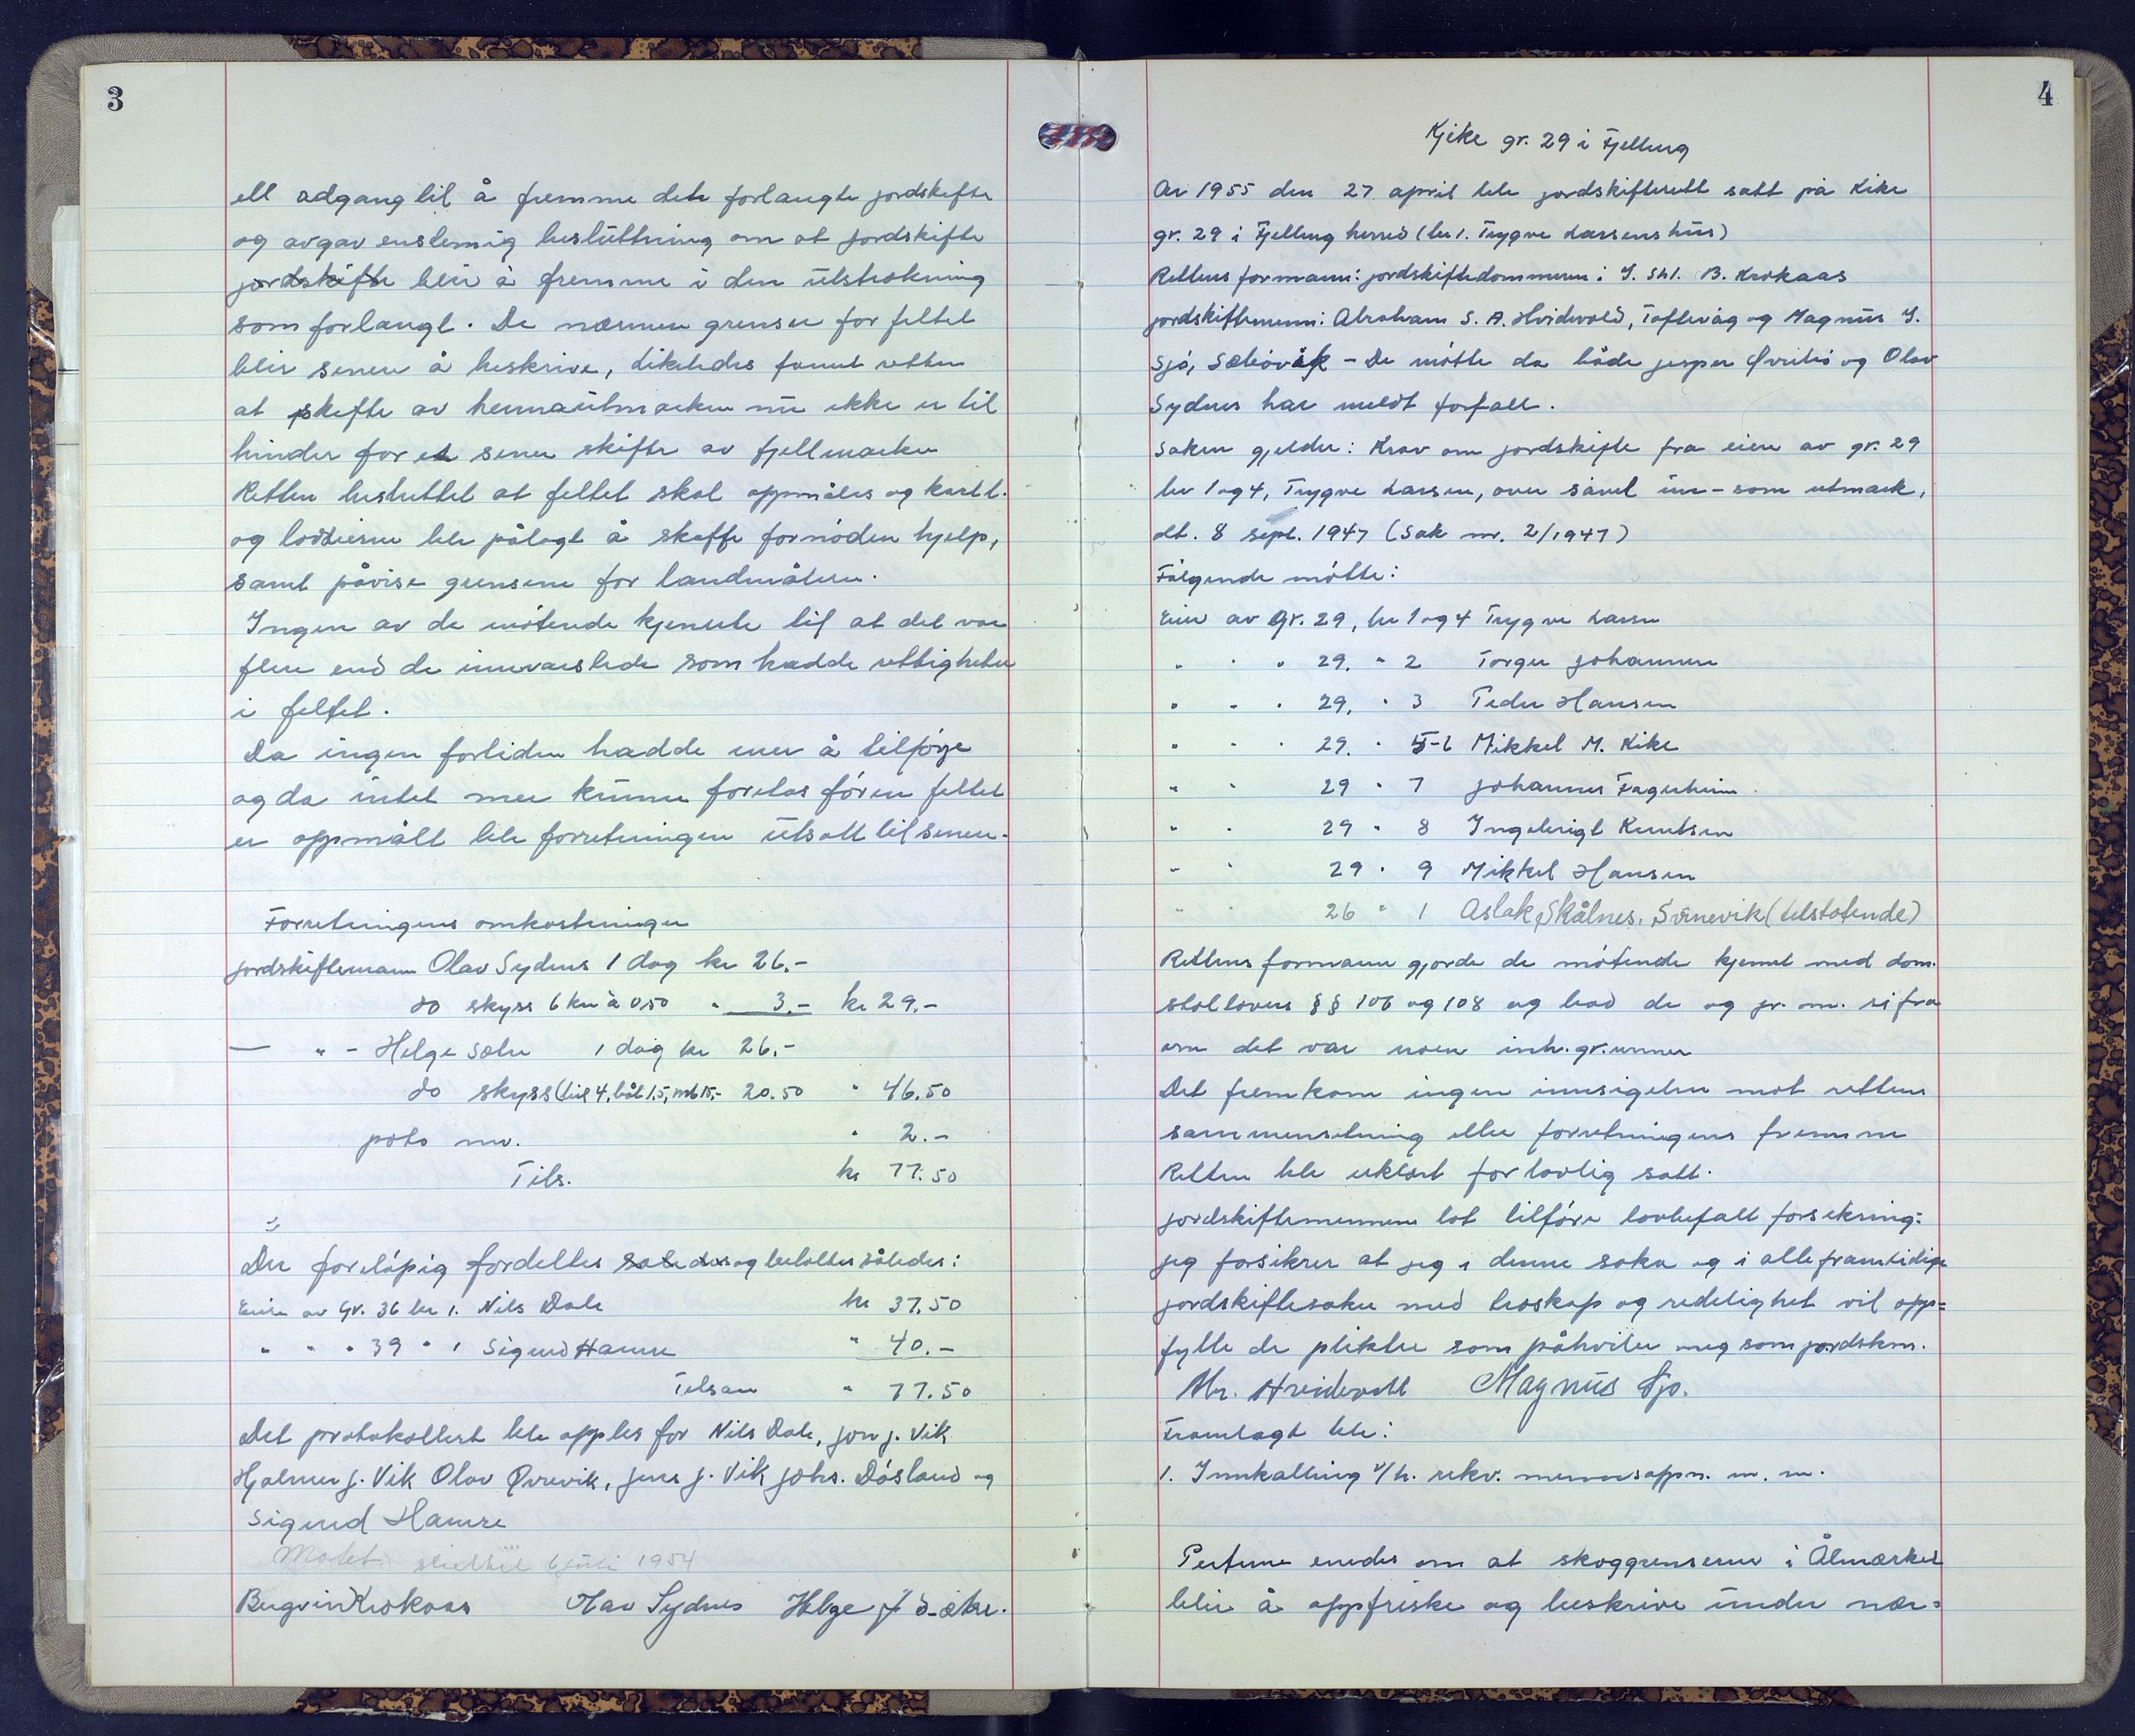 3
ell adgang til å fremme det forlangte jordskifte
og avgav enstemig beslutning om at jordskifte
jordskifte blir å fremme i den utstrekning
som forlangt. De nærmere grenser for feltet
blir senere å beskrive, likeledes fannt retten
at skifte av heimautmarken nu ikke er til
hinder for et sener skifte av fjellmarken
Retten besluttet at feltet skal oppmåles og kartl.
og loddeierne ble pålagt å skaffe fornöden hjelp,
samt påvise grensene for landmåleren.
Ingen av de mötende kjennte til at det var
flere end de innvarslede som hadde rettigheter
i feltet.
Da ingen fortiden hadde mer å tilföye
og da intet mer kunne foretas för en feltet
er oppmålt ble forretningen utsatt til senere.
Forretningens omkostninger
jordskiftemann Olav Sydnes 1 dag kr 26.-
do skyss 6 km à 0,50 " 3.- kr 29.-
— " - Helge Sætre 1 dag kr 26.-
do skyss (bil 4, båt 1.5, mb 15,- 20.50 " 46.50
porto mv. " 2.-
Tils. kr 77.50
Der foreløpig fordeltes således og betaltes således:
Eier av Gr. 36 br 1. Nils Dale kr 37.50
" " " 39 " 1 Sigurd Hamre " 40.-
Tilsam " 77.50
Det protokollert ble opples for Nils Dale, jon j. Vik
Hjalmer j. Vik Olav Qvrevik, jens j. Vik johs. Dósland og
Sigurd Hamre
Møtet sluttet 6 juli 1954
Bergvin Krokaas Olav Sydnes Helge J Sætre.
4
Kjike gr. 29 i Fjelberg
Aar 1955 den 27 april ble jordskifterett satt på Kike
gr. 29 i Fjelberg herred (br 1. Trygve Larsens hus)
Rettens formann: jordskiftedommeren i S. Shl. B. Krokaas
jordskiftemenn: Abraham S. A. Hvidevold, Toftevåg og Magnus S.
Sjó, Sæbövik - De mötte da både jesper Øvrebö og Olav
Sydnes har meldt forfall.
Saken gjelder: Krav om jordskifte fra eier av gr. 29
br 1 og 4, Trygve Larsen, over såvel inn- som utmark,
dt. 8 sept. 1947 (Sak nr. 2/1947)
Fölgende mötte:
Eier av Gr. 29, br 1 og 4 Trygve Larsen
" " " 29. " 2 Torger Johannesen
" " " 29. " 3 Peder Hansen
" " " 29. " 5-6 Mikkel M. Kike
" " 29 " 7 Johannes Fagerheim
" " 29 " 8 Ingebrigt Knutsen
" " 29 " 9 Mikkel Hansen
" " 26 " 1 Aslak Skålnes, Sunnevik (tilstøtende)
Rettens formann gjorde de mötende kjennt med dom-
stollovens §§ 106 og 108 og bad de og jr. m. si fra
om det var noen inh. gr. unner
Det fremkom ingen innsigelse mot rettens
sammensetning eller forretningens fremme
Retten ble erklært for lovlig satt.
jordskiftemennene lot tilföre lovbefalt forsikring:
jeg forsikrer at jeg i denne saken og i alle framtidige
jordskiftesaker med troskap og redelighet vil opp=
fylle de plikter som påhviler meg som jordskm.
Abr. Hvidevold Magnus Sjo.
Framlagt ble:
1. Innkalling v/h. rekv. mennsoppn. m. m.
Partene enedes om at skoggrensene i Ålmarka
blir å oppfriske og beskrive under nær=